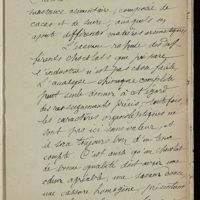 substance alimentaire, composée de
cacao et de sucre, auxquels on
ajoute différentes matières aromatiques.
L'examen rapide des dif-
férents chocolats que prépare
l'industrie n'est pas chose facile,
L'analyse chimique complète
peut seule donner à cet égard
des renseignements précis; toutefois
les caractères organoleptiques ne
sont pas ici sans valeur, et
il sera toujours bon d'en tenir
compte. C'est ainsi qu'un chocolat
de bonne qualité doit avoir une
odeur agréable, une saveur douce,
une cassure homogène, présentant